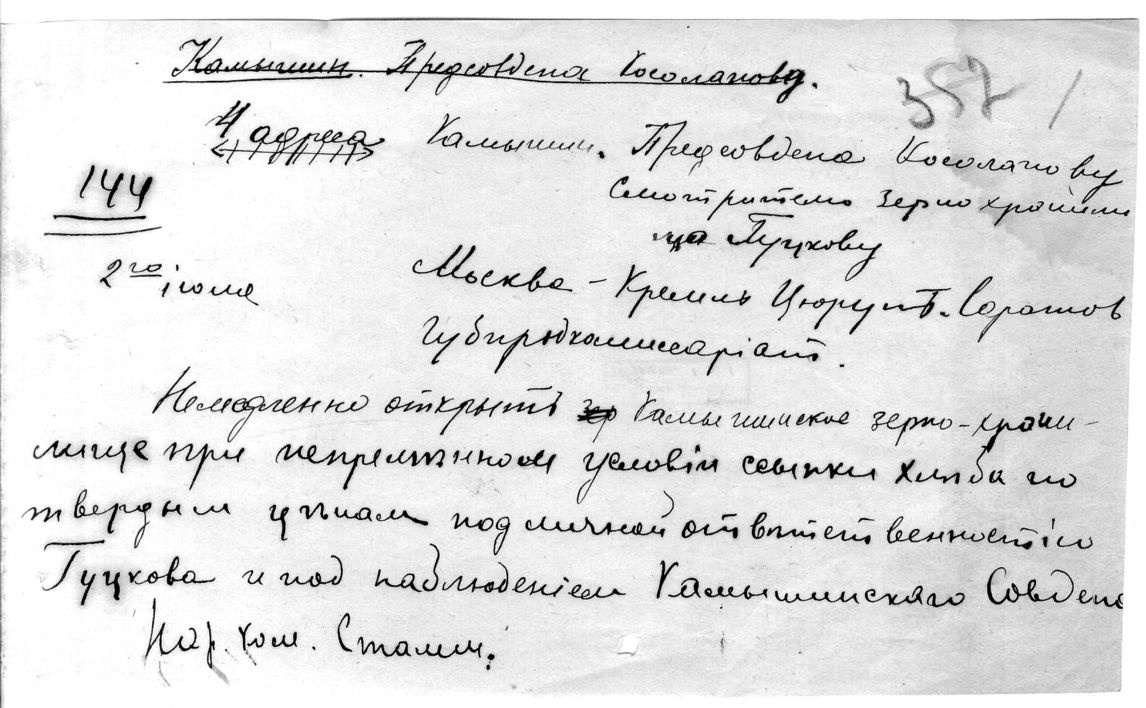 Камышин. Предсовдепа Косолапову.
357 /
4 адреса Камышин. Предсовдепа Косолапову
144 Смотрителю зернохранили
ща Гуцкову
2го іюля Москва – Кремль Цюрупѣ. Саратов
Губпродкомиссаріат.
Немедленно открыть Камышинское зерно-храни-
лище при непремѣнном условіи ссыпки хлѣба по
твердым цѣнам под личной отвѣтственностію
Гуцкова и под наблюденіем Камышинскаго Совдепа
Нар. ком. Сталин.